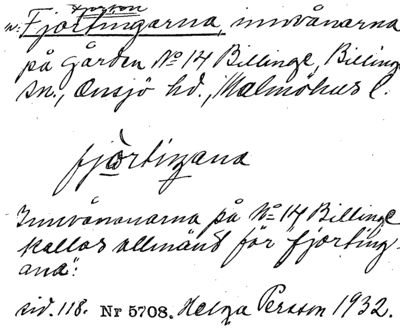 person
n: Fjortingarna, innvånarna
på gården No 14 Billinge, Billinge
sn., Onsjö hd., Malmöhus l.
fjòrtingana
Innvånanarna på No 14 Billinge
kallas allmänt för "fjorting-
ana".
sid. 118. Nr 5708. Helga Persson 1932.